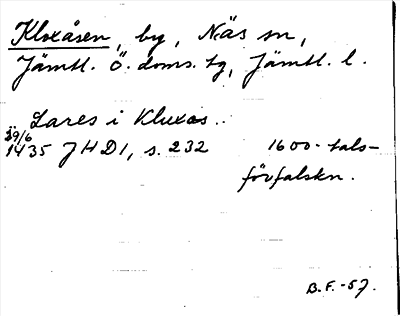 Kloxåsen, by, Näs sn,
Jämtl. Ö. doms. tg, Jämtl. l.
Lares i Kluxos..
29/6
1435 JHD 1, s. 232 1600-tals-
förfalskn.
B.F.-57.